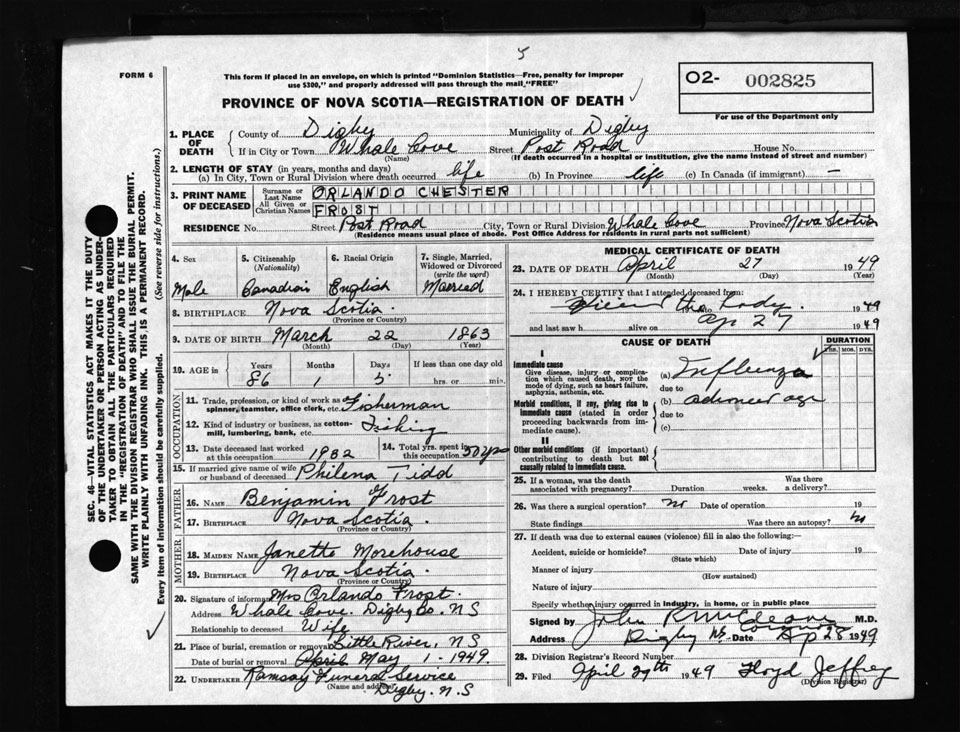 5
FORM 6
This form if placed in an envelope, on which is printed "Dominion Statistics—Free, penalty for improper
use $300," and properly addressed will pass through the mail "FREE"
O2- 002825
For use of the Department only
PROVINCE OF NOVA SCOTIA—REGISTRATION OF DEATH
SEC. 46—VITAL STATISTICS ACT MAKES IT THE DUTY
OF THE UNDERTAKER OR PERSON ACTING AS UNDER-
TAKER TO OBTAIN ALL THE PARTICULARS REQUIRED
IN THE "REGISTRATION OF DEATH" AND TO FILE THE
SAME WITH THE DIVISION REGISTRAR WHO SHALL ISSUE THE BURIAL PERMIT.
WRITE PLAINLY WITH UNFADING INK. THIS IS A PERMANENT RECORD.
Every item of information should be carefully supplied. (See reverse side for instructions.)
1. PLACE OF DEATH County of Digby Municipality of Digby
If in City or Town Whale Cove Street Post Road House No.
(Name) (If death occurred in a hospital or institution, give the name instead of street and number)
2. LENGTH OF STAY (in years, months and days)
(a) In City, Town or Rural Division where death occurred life (b) In Province life (c) In Canada (if immigrant) —
3. PRINT NAME OF DECEASED Surname or Last Name ORLANDO CHESTER
All Given or Christian Names FROST
RESIDENCE No. Street Post Road City, Town or Rural Division Whale Cove Province Nova Scotia
(Residence means usual place of abode. Post Office Address for residents in rural parts not sufficient)
4. Sex 5. Citizenship (Nationality) 6. Racial Origin 7. Single, Married, Widowed or Divorced (write the word)
Male Canadian English Married
8. BIRTHPLACE Nova Scotia
(Province or Country)
9. DATE OF BIRTH March 22 1863
(Month) (Day) (Year)
10. AGE in Years Months Days If less than one day old
86 1 5 hrs. or min.
OCCUPATION
11. Trade, profession, or kind of work as spinner, teamster, office clerk, etc. Fisherman
12. Kind of industry or business, as cotton-mill, lumbering, bank, etc. Fishing
13. Date deceased last worked at this occupation 1932 14. Total yrs. spent in this occupation 50 yrs
15. If married give name of wife or husband of deceased Philena Tidd
FATHER
16. NAME Benjamin Frost
17. BIRTHPLACE Nova Scotia.
(Province or Country)
MOTHER
18. MAIDEN NAME Janette Morehouse
19. BIRTHPLACE Nova Scotia.
(Province or Country)
20. Signature of informant Mrs Orlando Frost.
Address Whale Cove. Digby Co. N S
Relationship to deceased Wife
21. Place of burial, cremation or removal Little River, N S
Date of burial or removal April May 1 - 1949.
22. UNDERTAKER Ramsay Funeral Service
(Name and address) Digby. N.S
MEDICAL CERTIFICATE OF DEATH
23. DATE OF DEATH April 27 1949
(Month) (Day) (Year)
24. I HEREBY CERTIFY that I attended deceased from:
Viewed the body. 1949
and last saw h alive on Ap 27 1949
CAUSE OF DEATH DURATION
YRS. MOS. DYS.
I
Immediate cause
Give disease, injury or complication which caused death, NOT the mode of dying, such as heart failure, asphyxia, asthenia, etc.
(a) Influenza
due to
Morbid conditions, if any, giving rise to immediate cause (stated in order proceeding backwards from immediate cause).
(b) advanced age
due to
(c)
II
Other morbid conditions (if important) contributing to death but not causally related to immediate cause.
25. If a woman, was the death associated with pregnancy? Duration weeks. Was there a delivery?
26. Was there a surgical operation? no Date of operation 19
State findings Was there an autopsy? no
27. If death was due to external causes (violence) fill in also the following:—
Accident, suicide or homicide? Date of injury 19
(State which)
Manner of injury
(How sustained)
Nature of injury
Specify whether injury occurred in industry, in home, or in public place
Signed by John R M.D.
Address Digby NS Date Ap 28 1949
28. Division Registrar's Record Number
29. Filed April 29th 1949 Floyd Jeffrey
(Division Registrar)